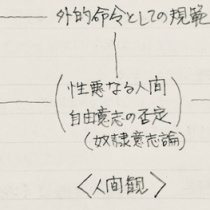 外的命令としての規範
性悪なる人間
自由意志の否定
(奴隷意志論)
<人間観>